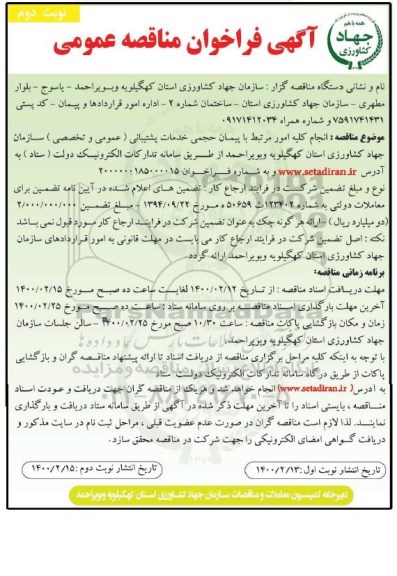 نوبت دوم
همه با هم
جهاد
کشاورزی
آگهی فراخوان مناقصه عمومی
نام و نشانی دستگاه مناقصه گزار : سازمان جهاد کشاورزی استان کهگیلویه وبویراحمد - یاسوج - بلوار
مطهری - سازمان جهاد کشاورزی استان - ساختمان شماره ۲ - اداره امور قراردادها و پیمان - کد پستی
۷۵۹۱۷۴۱۴۳۱ و شماره همراه ۰۹۱۷۴۱۲۰۳۴
موضوع مناقصه : انجام کلیه امور مرتبط با پیمان حجمی خدمات پشتیبانی ( عمومی و تخصصی ) سازمان
جهاد کشاورزی استان کهگیلویه وبویراحمد از طریق سامانه تدارکات الکترونیک دولت ( ستاد ) به
آدرس www.setadiran.ir و به شماره فراخوان
نوع و مبلغ تضمین شرکت در فرایند ارجاع کار : تضمین های اعلام شده در آیین نامه تضمین برای
معاملات دولتی به شماره ۱۲۳۴۰۲/ت ۵۰۶۵۹ ه مورخ ۱۳۹۴/۰۹/۲۲ - مبلغ تضمین ۲/۰۰۰/۰۰۰/۰۰۰
(دو میلیارد ریال) - ارائه هر گونه چک به عنوان تضمین شرکت در فرایند ارجاع کار مورد قبول نمی باشد
نکته : اصل تضمین شرکت در فرایند ارجاع کار می بایست در مهلت قانونی به امور قراردادهای سازمان
جهاد کشاورزی استان کهگیلویه وبویراحمد ارائه گردد.
برنامه زمانی مناقصه:
مهلت دریافت اسناد مناقصه : از تاریخ ۱۴۰۰/۰۲/۱۲ لغایت ساعت ده صبح مورخ ۱۴۰۰/۰۲/۱۵
آخرین مهلت بارگذاری اسناد مناقصه بر روی سامانه ستاد : ساعت ده صبح مورخ ۱۴۰۰/۰۲/۲۵
زمان و مکان بازگشایی پاکات مناقصه : ساعت ۱۰/۳۰ صبح مورخ ۱۴۰۰/۰۲/۲۵ - سالن جلسات سازمان
جهاد کشاورزی استان کهگیلویه وبویراحمد.
با توجه به اینکه کلیه مراحل برگزاری مناقصه از دریافت اسناد تا ارائه پیشنهاد مناقصه گران و بازگشایی
پاکات از طریق درگاه سامانه تدارکات الکترونیک دولت ستاد
به آدرس( www.setadiran.ir) انجام خواهد شد و هریک از مناقصه گران جهت دریافت و عودت اسناد
مناقصه ، بایستی اسناد را تا آخرین مهلت ذکر شده در آگهی از طریق سامانه ستاد دریافت و بارگذاری
نمایند. لذا لازم است مناقصه گران در صورت عدم عضویت قبلی ، مراحل ثبت نام در سایت مذکور و
دریافت گواهی امضای الکترونیکی را جهت شرکت در مناقصه محقق سازد.
تاریخ انتشار نوبت اول :۱۴۰۰/۲/۱۳
تاریخ انتشار نوبت دوم :۱۴۰۰/۲/۱۵
دبیرخانه کمیسیون معاملات و مناقصات سازمان جهاد کشاورزی استان کهگیلویه وبویراحمد